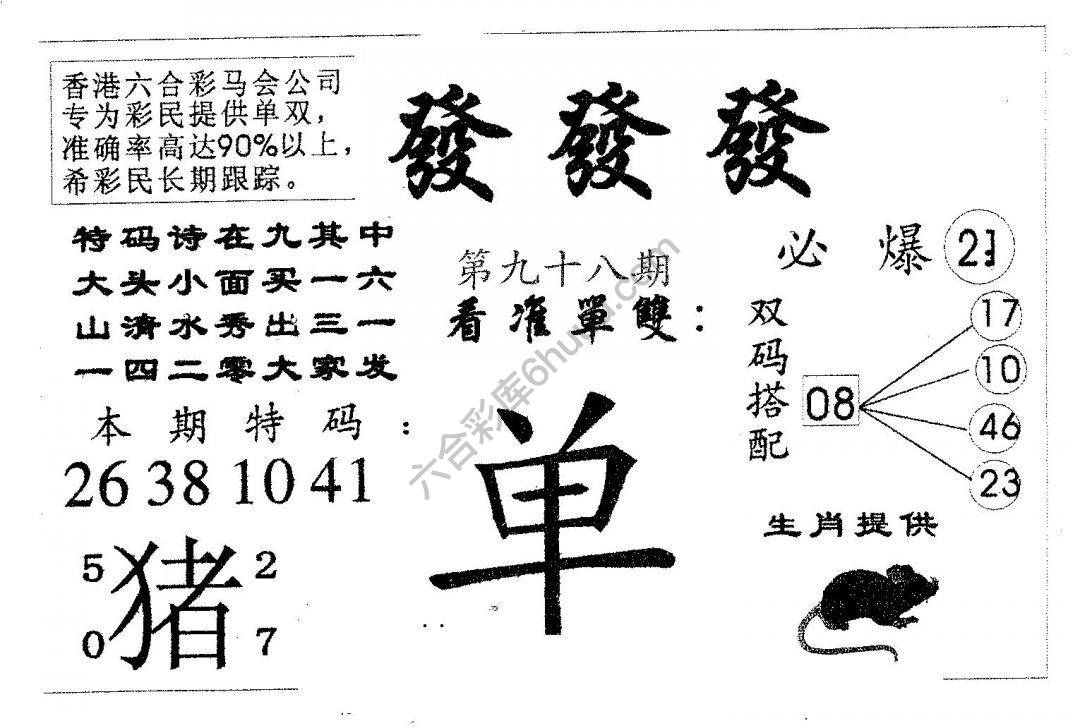 香港六合彩马会公司
专为彩民提供单双，
准确率高达90%以上，
希彩民长期跟踪。
發 發 發
特码诗在九其中
大头小面买一六
山清水秀出三一
一四二零大家发
第九十八期
看准單雙：
必爆
双码搭配
08
17
10
46
23
本期特码：
26 38 10 41
单
生肖提供
猪
5 2
0 7
六合彩库6huu.com